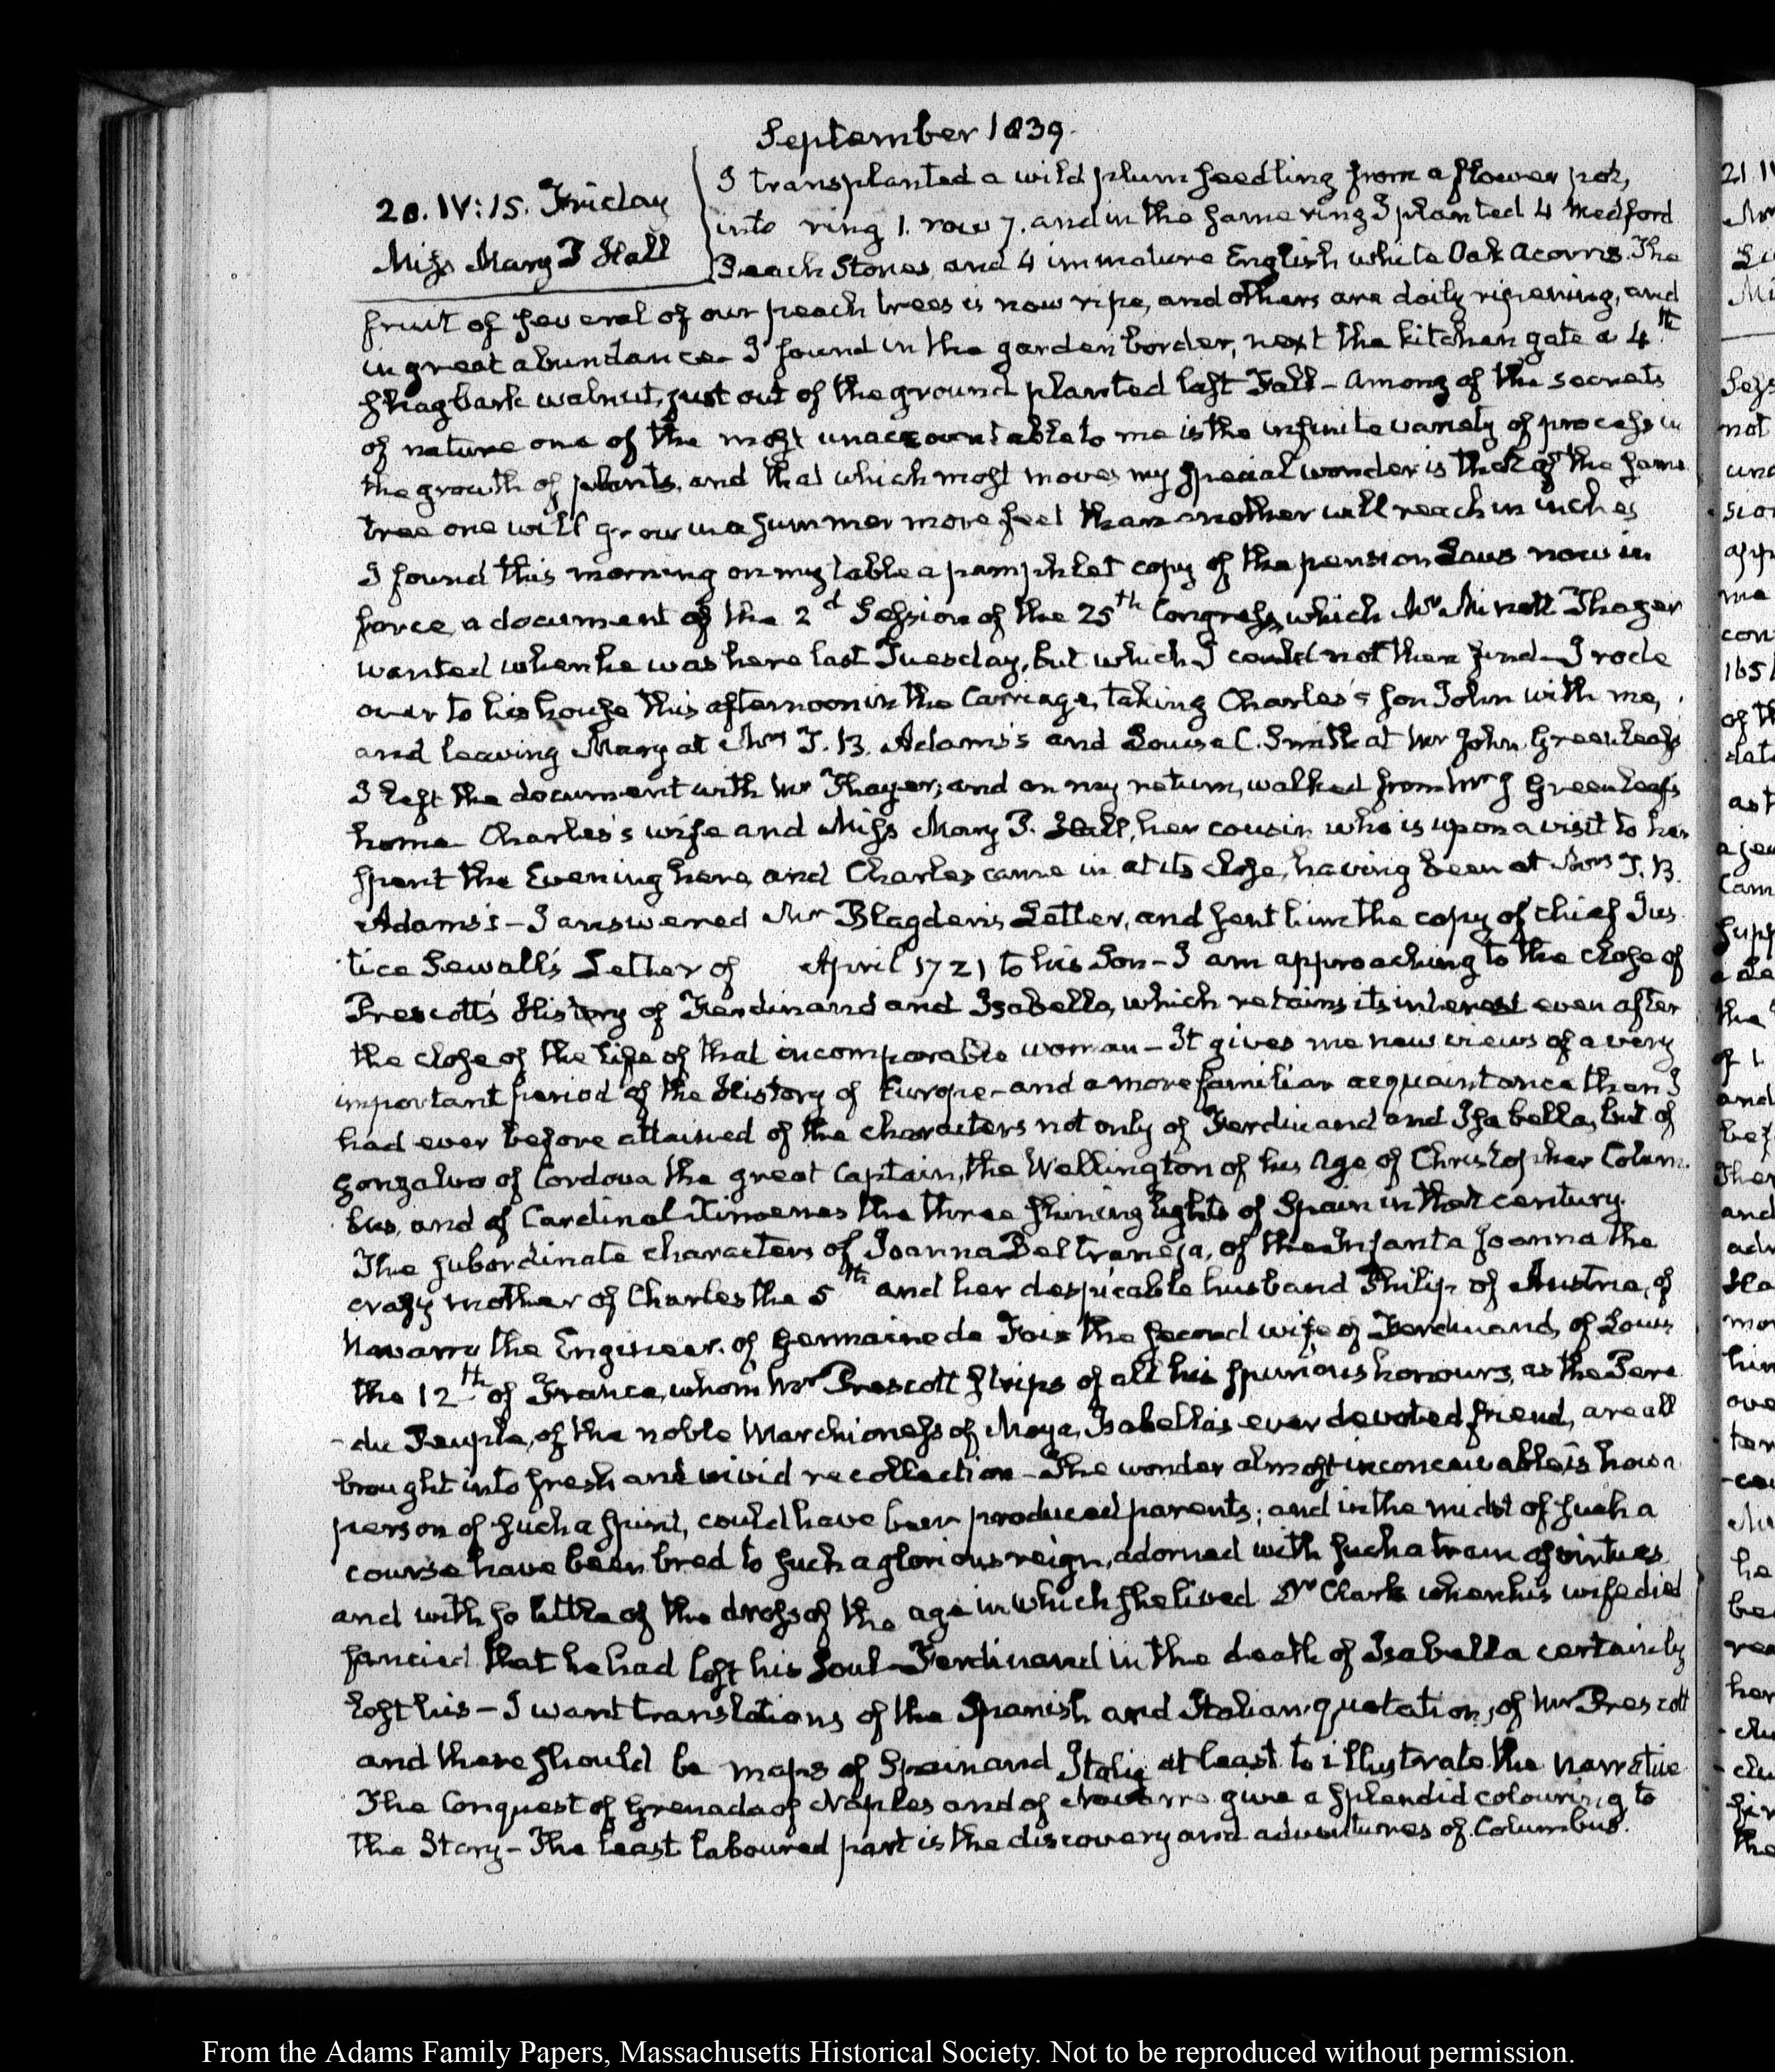 September 1839.
20. IV:15. Friday
Miss Mary P Hall
I transplanted a wild plum seedling from a flower pot,
into ring 1. row 7. and in the same ring I planted 4 Medford
Peach Stones, and 4 immature English white Oak acorns. The
fruit of several of our peach trees is now ripe, and others are daily ripening, and
in great abundance. I found in the garden border, next the kitchen gate a 4th
shagbark walnut, just out of the ground planted last Fall – Among of the secrets
of nature one of the most unaccountable to me is the infinite variety of process in
the growth of plants, and that which most moves my special wonder is that of the same
tree one will grow in a summer more feet than another will reach in inches
I found this morning on my table a pamphlet copy of the pension Laws now in
force, a document of the 2d Session of the 25th Congress, which Mr Minott Thayer
wanted when he was here last Tuesday, but which I could not then find – I rode
over to his house this afternoon in the Carriage, taking Charles's son John with me,
and leaving Mary at Mrs T. B. Adams's and Louisa C. Smith at Mr John Greenleaf's
I left the document with Mr Thayer; and on my return, walked from Mr J Greenleaf's
home. Charles's wife and Miss Mary P. Hall, her cousin who is upon a visit to her
spent the Evening here, and Charles came in at its close, having been at Mrs T. B.
Adams's – I answered Mr Blagden's Letter, and sent him the copy of chief Jus
tice Sewall's Letter of April 1721 to his Son – I am approaching to the close of
Prescott's History of Ferdinand and Isabella, which retains its interest even after
the close of the life of that incomparable woman – It gives me new views of a very
important period of the History of Europe – and a more familiar acquaintance than I
had ever before attained of the characters not only of Ferdinand and Isabella, but of
Gonzalvo of Cordova the great Captain, the Wellington of his Age of Christopher Colum
bus, and of Cardinal Ximenes the three shining lights of Spain in that century.
The subordinate characters of Joanna Beltraneja, of the Infanta Joanna the
crazy mother of Charles the 5th and her despicable husband Philip of Austria, of
Navarro the Engineer. of Germaine de Foix the second wife of Ferdinand, of Louis
the 12th of France, whom Mr Prescott strips of all his spurious honours, as the Pere
du Peuple, of the noble Marchioness of Moya, Isabella's ever devoted friend, are all
brought into fresh and vivid recollection – The wonder almost inconceivable is how a
person of such a spirit, could have been produced parents; and in the midst of such a
course have been bred to such a glorious reign, adorned with such a train of virtues
and with so little of the dross of the age in which she lived Dr Clark when his wife died
fancied that he had lost his Soul – Ferdinand in the death of Isabella certainly
lost his – I want translations of the Spanish and Italian quotations, of Mr Prescott
and there should be maps of Spain and Italy at least to illustrate the narrative
The Conquest of Grenada of Naples and of Navarre give a splendid colouring to
the Story – The least laboured part is the discovery and adventures of Columbus.
From the Adams Family Papers, Massachusetts Historical Society. Not to be reproduced without permission.